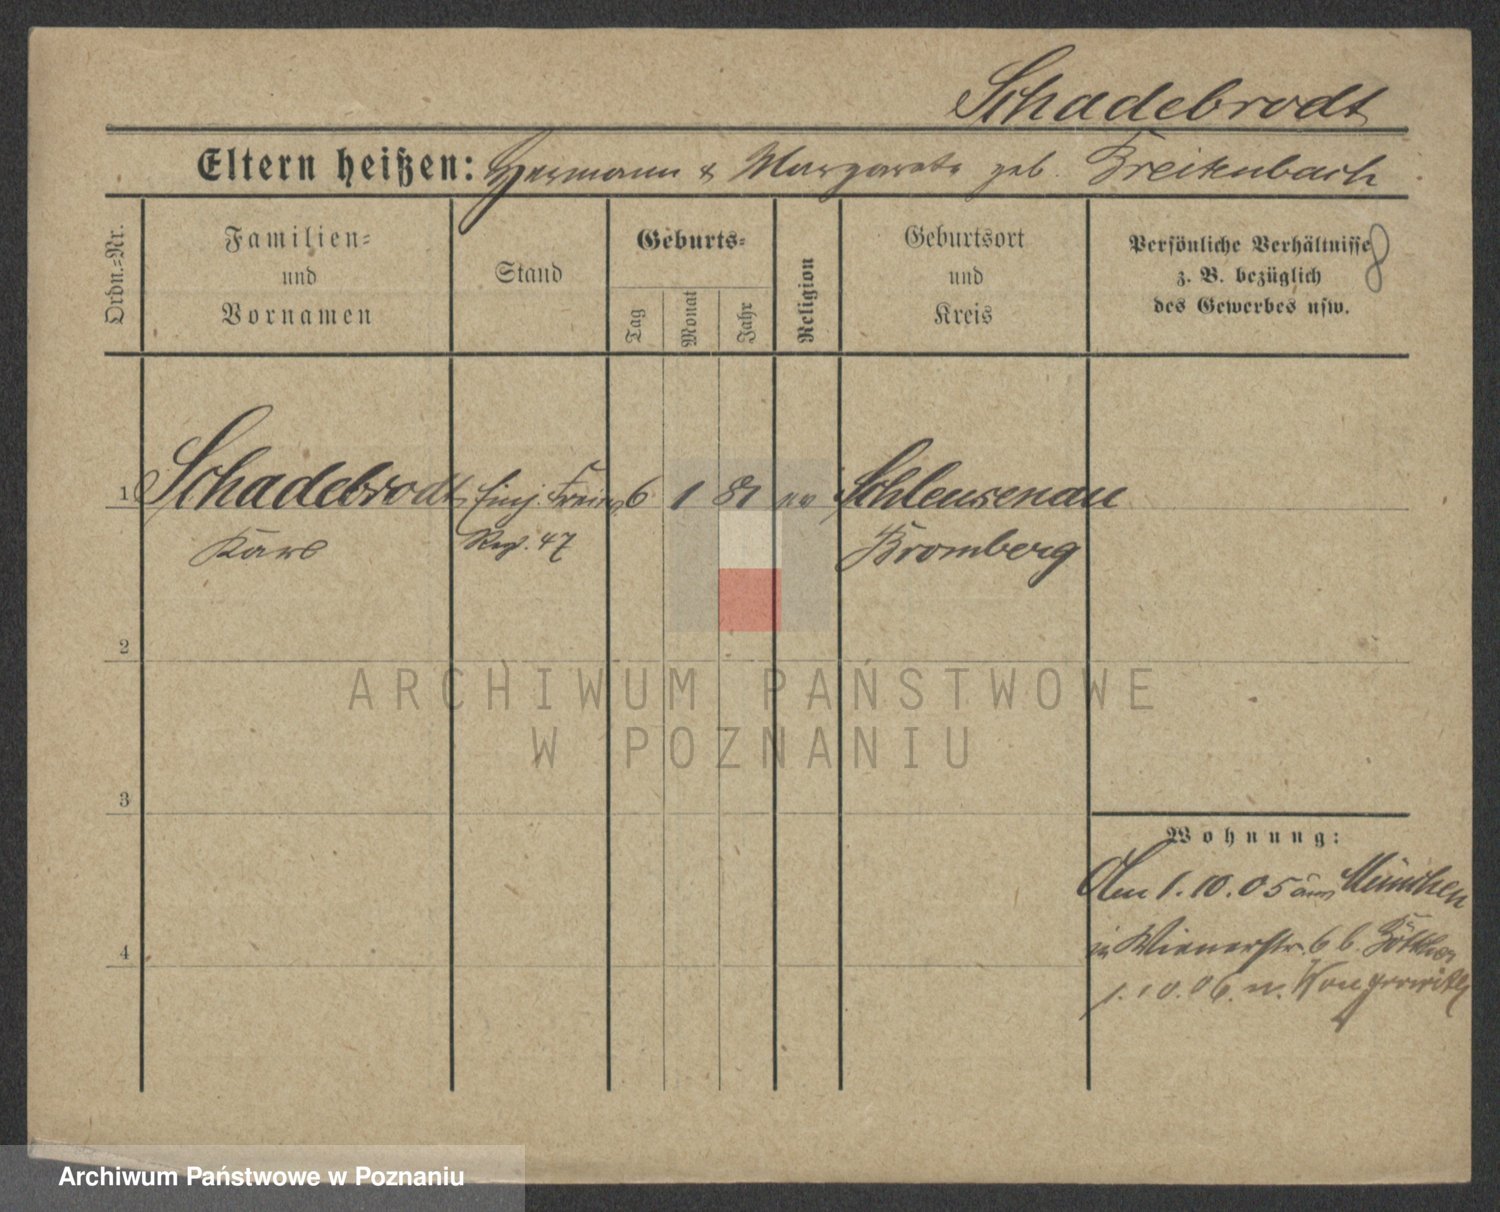 Schadebrodt
Eltern heißen: Hermann & Margarete geb. Breitenbach
Ordn.-Nr.
Familien-
und
Vornamen
Stand
Geburts-
Tag
Monat
Jahr
Religion
Geburtsort
und
Kreis
Persönliche Verhältnisse
z. B. bezüglich
des Gewerbes usw.
8
1 Schadebrodt Einj. Freiw. 6 1 81 ev Schleusenau
Karl Reg. 47 Bromberg
2
3
4
Wohnung:
Am 1.10.05 aus München
in Wienerstr. 6 b.
1.10.06. n.
ARCHIWUM PAŃSTWOWE
W POZNANIU
Archiwum Państwowe w Poznaniu